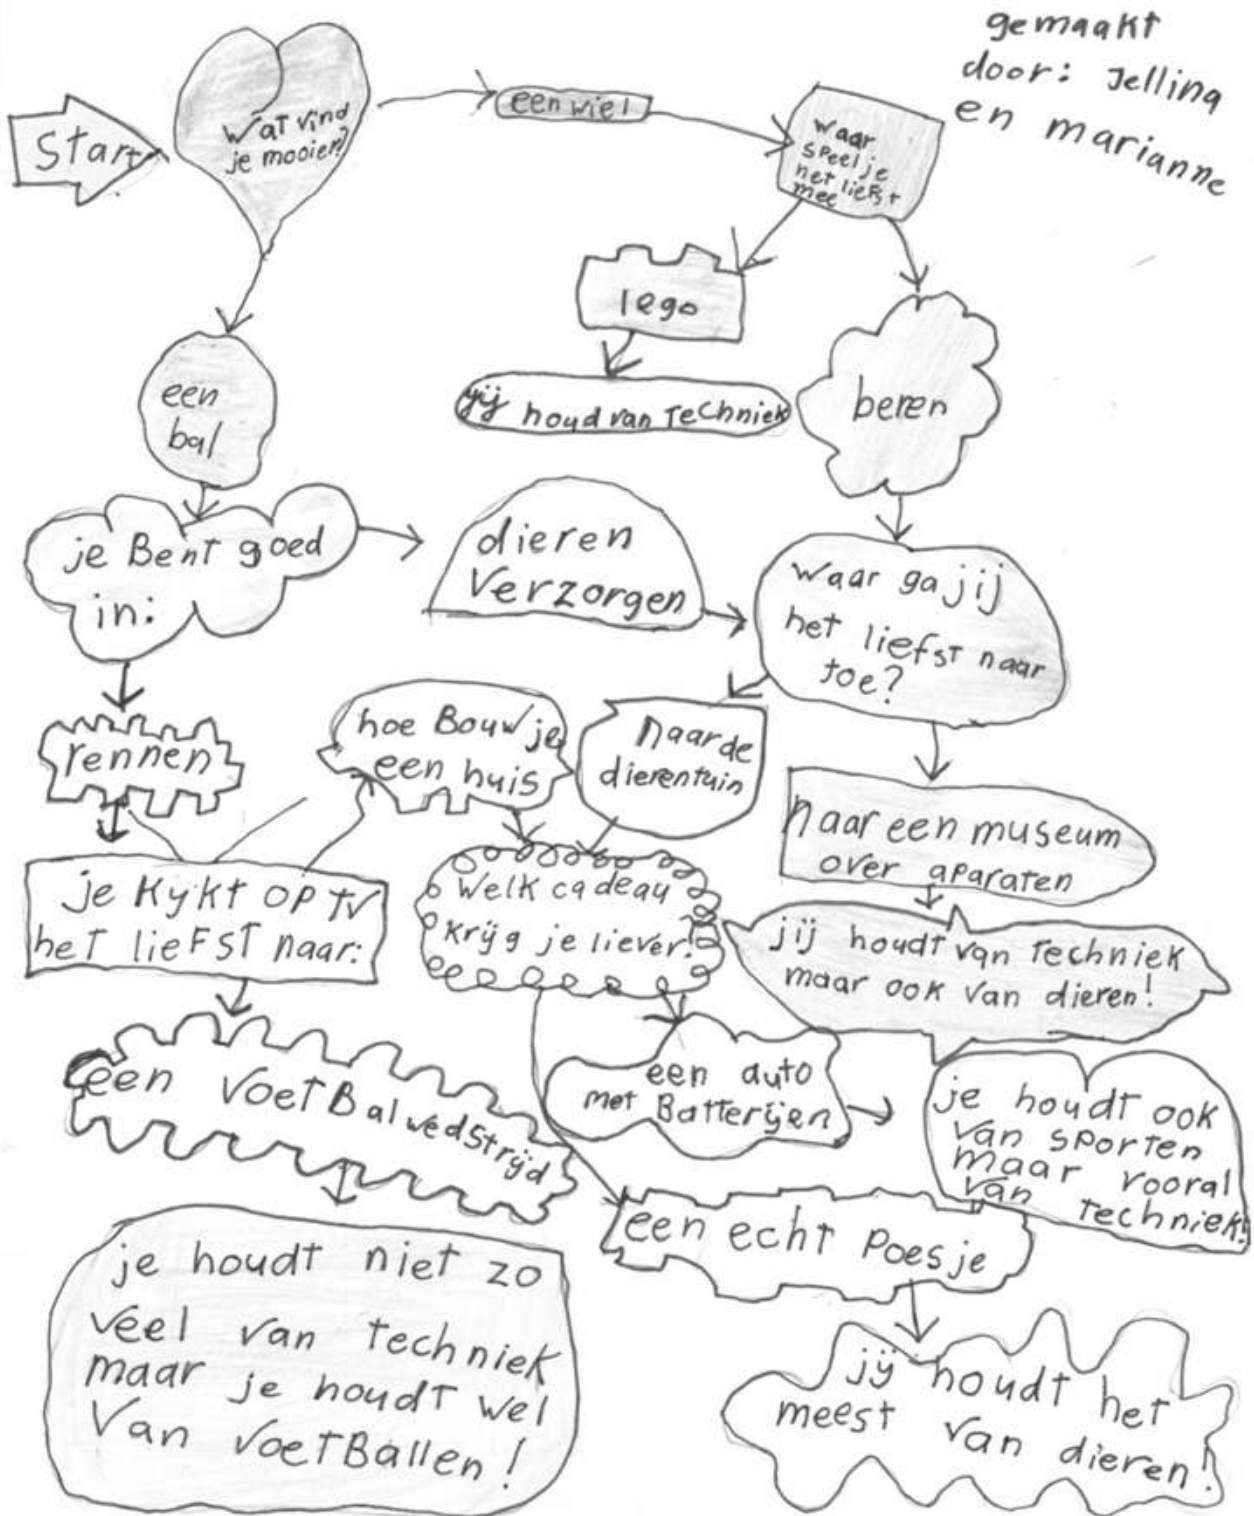 gemaakt
door: Jellina
en marianne
Start
Wat vind
je mooier?
een wiel
waar
speel je
het liefst
mee
lego
jij houd van Techniek
beren
een
bal
je Bent goed
in:
dieren
verzorgen
waar ga jij
het liefst naar
toe?
rennen
hoe Bouw je
een huis
naar de
dierentuin
naar een museum
over aparaten
je Kykt op TV
het liefst naar:
Welk cadeau
Krijg je liever!
jij houdt van Techniek
maar ook van dieren!
een voetBalwedstrijd
een auto
met Batterijen
je houdt ook
van sporten
maar vooral
van Techniek!
een echt poesje
je houdt niet zo
veel van Techniek
maar je houdt wel
van voetBallen!
jij houdt het
meest van dieren!